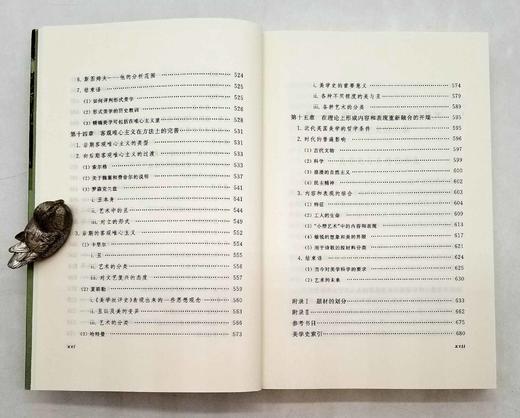 6. 斯图姆夫——他的分析范围 524
7. 结束语 530
(1) 如何评判形式美学 530
(2) 形式美学的历史教训 531
(3) 精确美学可包括在唯心主义里 532
第十四章 客观唯心主义在方法上的完善 533
1. 后期客观唯心主义的类型 533
2. 向后期客观唯心主义的过渡
(1) 索尔格
(2) 关于魏塞和费舍尔的说明
(3) 罗森克兰兹
i. 丑本身
ii. 艺术中的丑
iii. 对立的形式
3. 后期的客观唯心主义
(1) 卡里尔
i. 丑
ii. 艺术的分类
iii. 对文艺复兴的态度
(2) 夏斯勒
i. 《美学批评史》表现出来的一些思想观念
ii. 丑以及美的变异 569
iii. 艺术的分类 565
(3) 哈特曼 573
xvi
i. 美学史的重要意义 574
ii. 各种不同程度的美与丑 579
iii. 各种艺术的分类 585
第十五章 在理论上形成内容和表现重新融合的开端 595
1. 近代英国美学的哲学条件 595
2. 时代的普遍影响 596
(1) 古代文物
(2) 科学
(3) 浪漫的自然主义
(4) 民主精神
3. 内容和表现的综合 602
(1) 特征
(2) 工人的生命
(3) “小型艺术”中的内容和表现
(4) 敏锐的想象和美的界限
(5) 用于诗歌的按材料分类
4. 结束语
(1) 当今对美学科学的要求
(2) 艺术的未来
附录Ⅰ 题材的划分 633
附录Ⅱ
参考书目 675
美学史索引 680
xvii